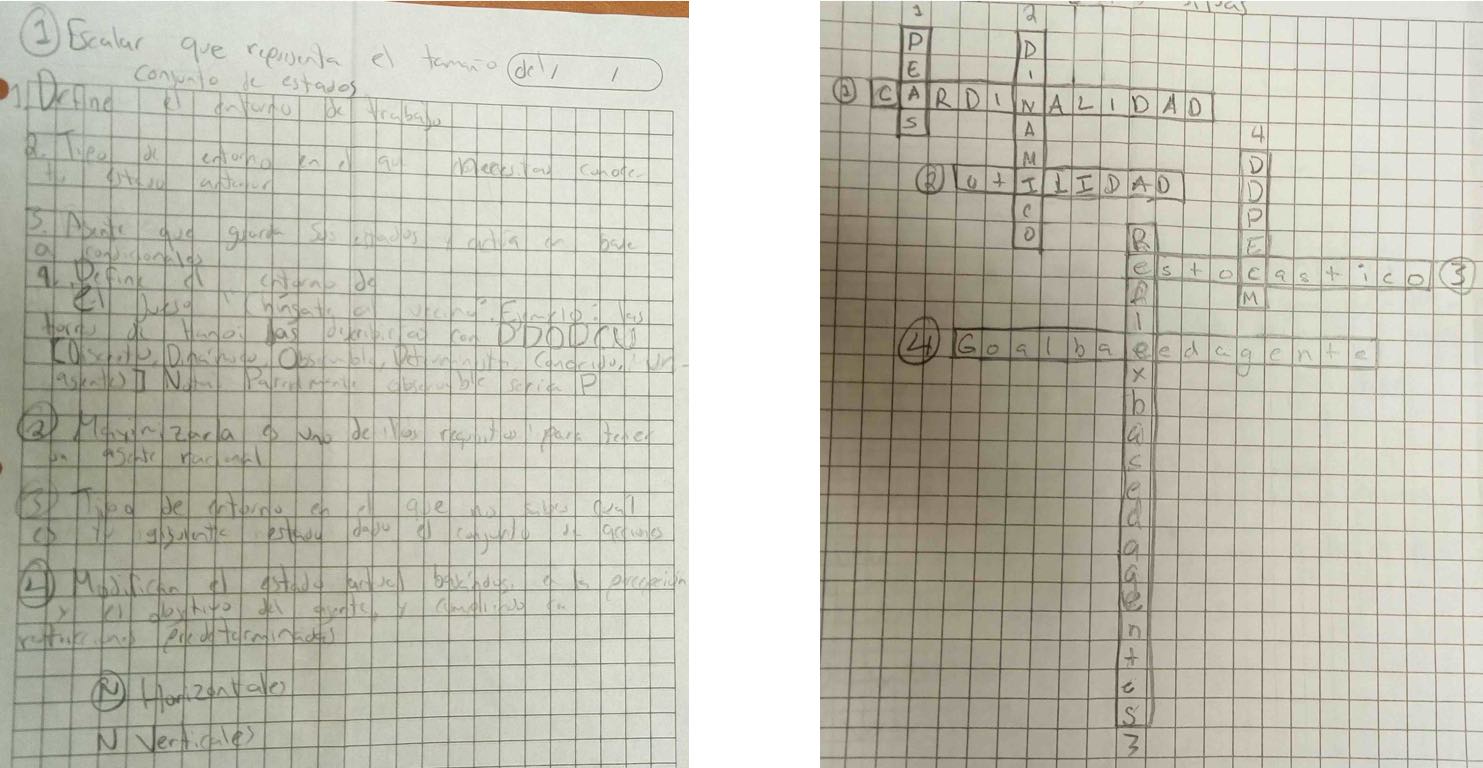 ① Escalar que representa el tamaño del
conjunto de estados
1. Define el entorno de trabajo
2. Tipo de entorno en el que necesitas conocer
tu estado anterior
3. Agente que guarda sus estados y actúa en base
a condicionales
4. Define el entorno de
el juego "chingate al vecino". Ejemplo: las
torres de Hanoi las describirías con DDODCU
[Discreto, Dinámico, Observable, Determinista, Conocido, Un
agente] Nota Parcialmente observable sería P
② Maximizarla es uno de los requisitos para tener
un agente racional
③ Tipo de entorno en el que no sabes cual
es tu siguiente estado dado el conjunto de acciones
④ Modifican el estado actual basandose en la percepción
y el objetivo del agente, y cumpliendo
predeterminadas
Ⓝ Horizontales
N Verticales
1 2
P D
E I
② C A R D I N A L I D A D
S A 4
M D
② U t I L I D A D D
C P
O R E
e s t o c a s t i c o ③
f M
l
④ G o a l b a e e d a g e n t e
x
b
a
s
e
d
a
g
e
n
t
e
s
3